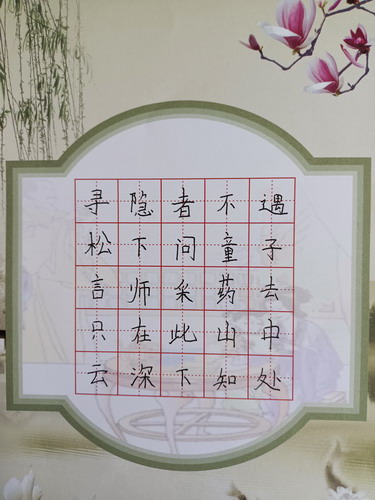 寻隐者不遇
松下问童子
言师采药去
只在此山中
云深下知处